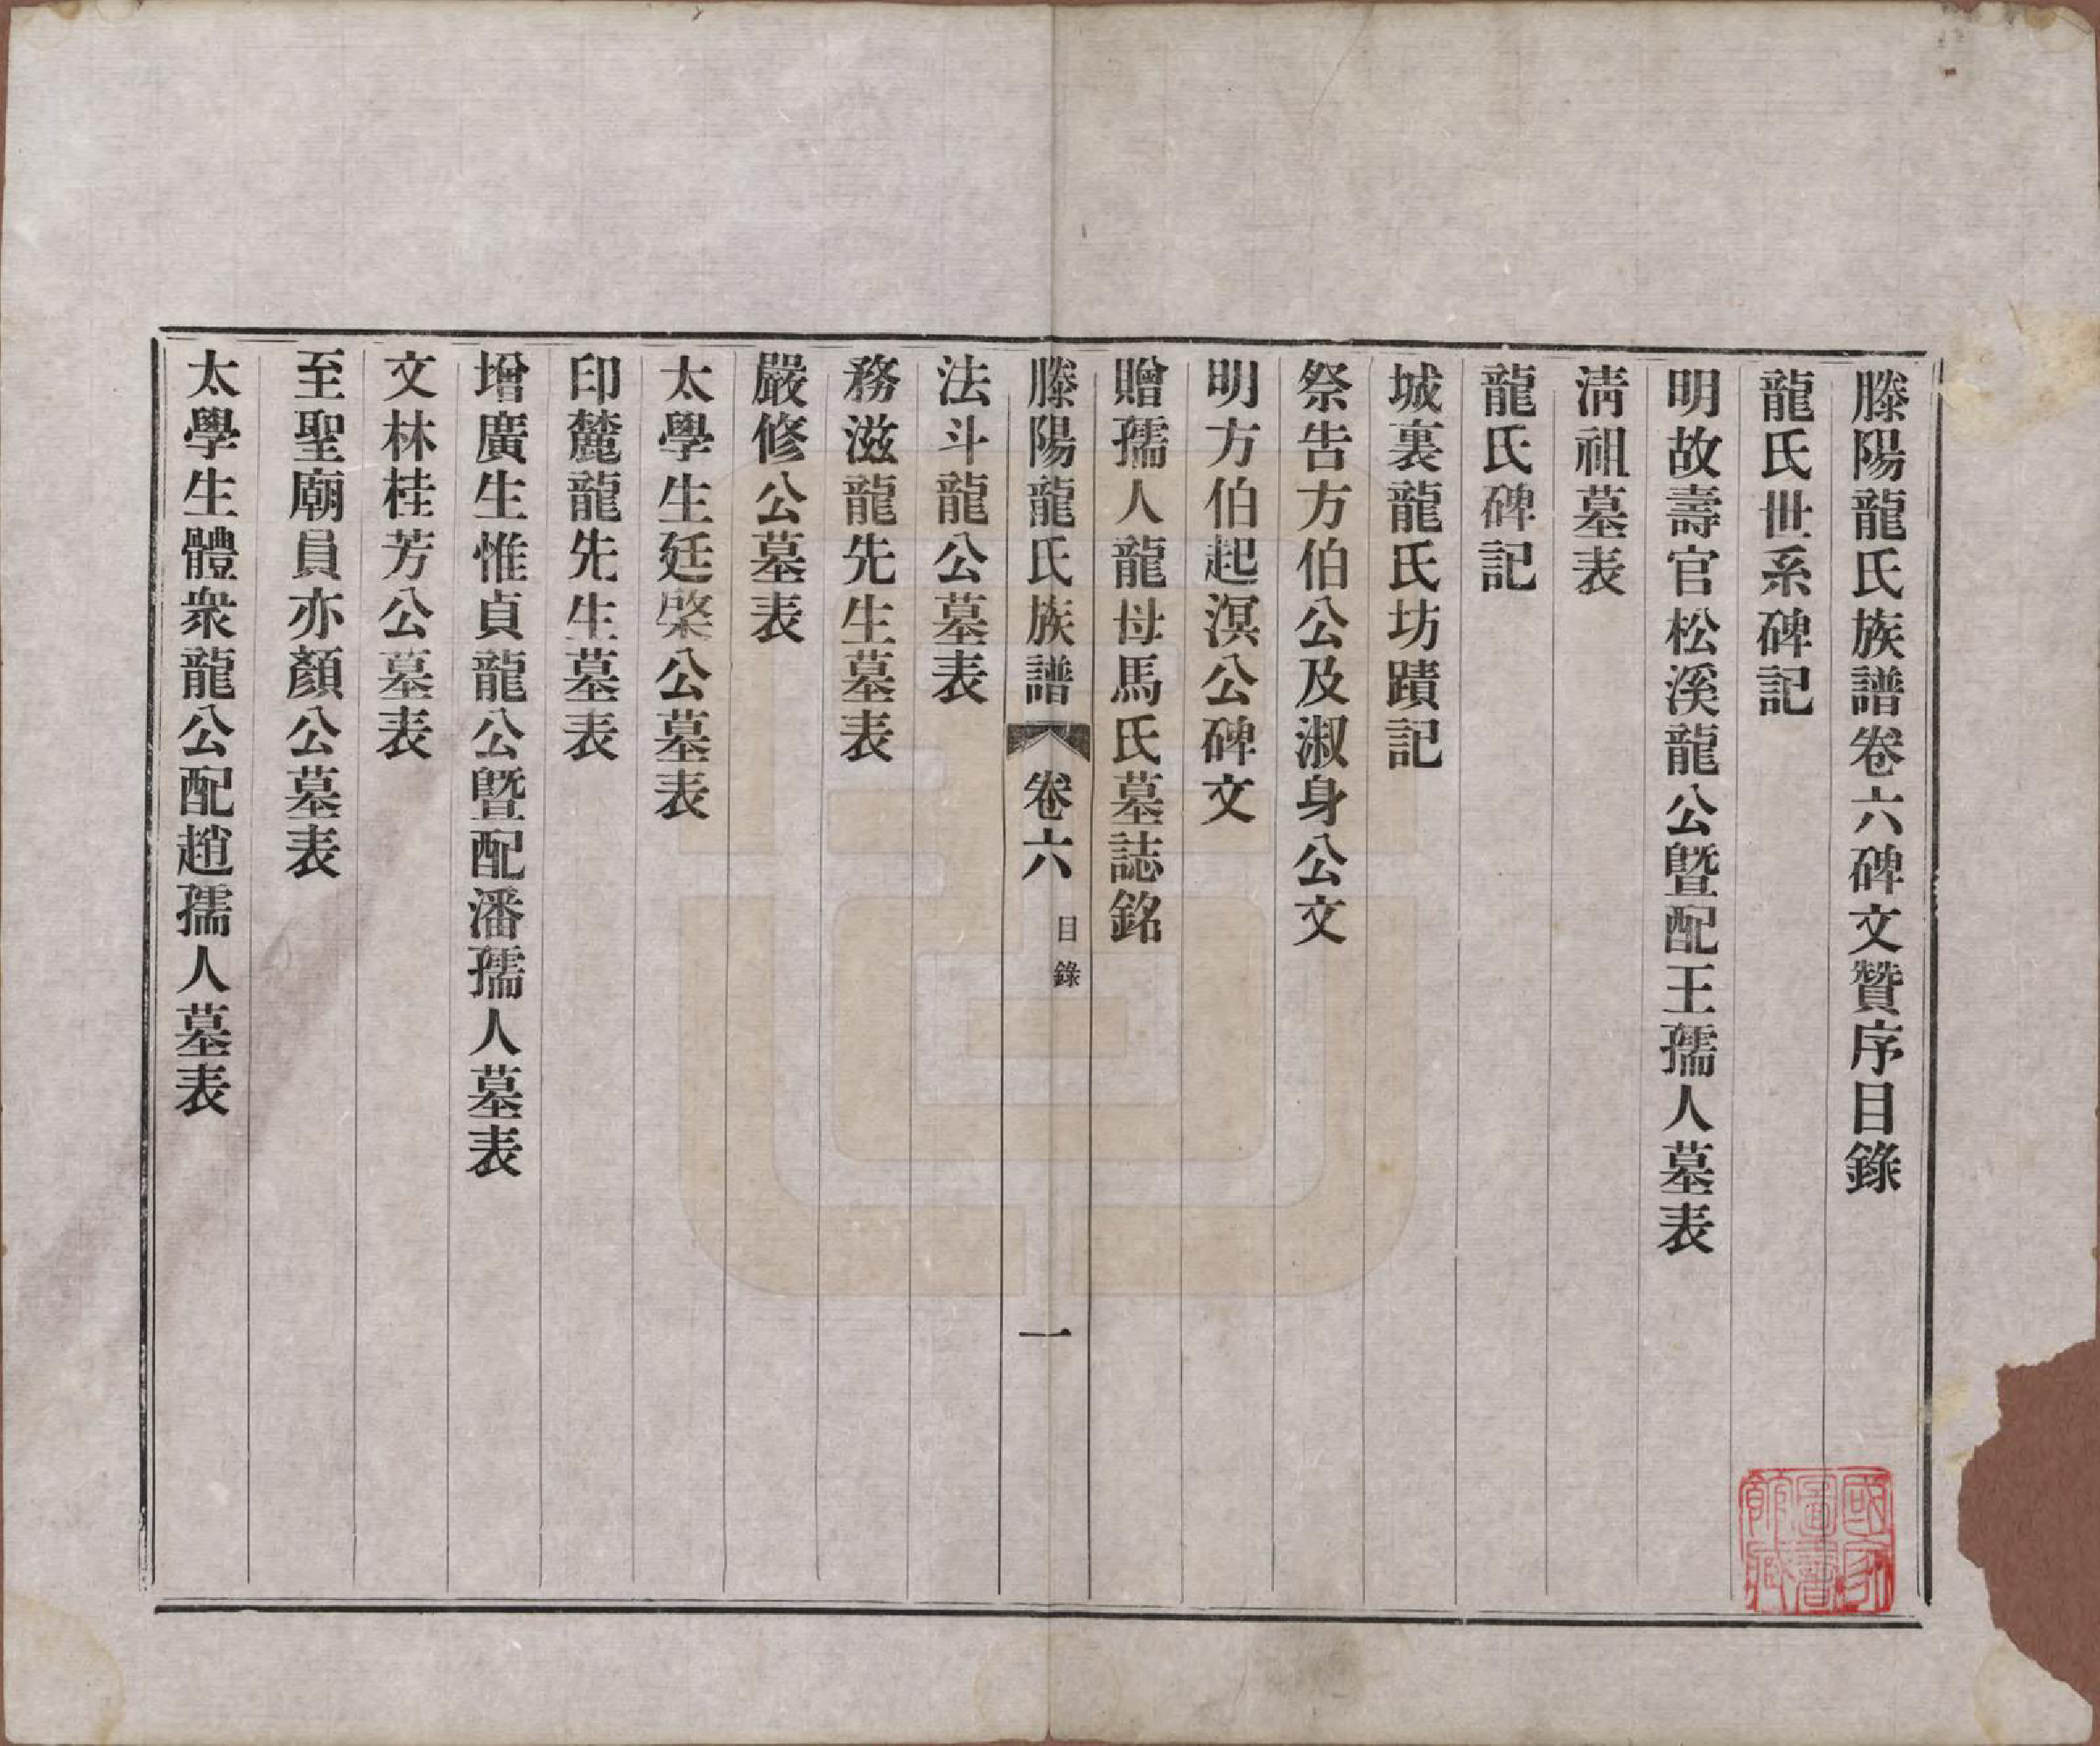 滕陽龍氏族譜卷六碑文贊序目錄
龍氏世系碑記
明故壽官松溪龍公暨配王孺人墓表
清祖墓表
龍氏碑記
城裏龍氏坊蹟記
祭告方伯公及淑身公文
明方伯起溟公碑文
贈孺人龍母馬氏墓誌銘
滕陽龍氏族譜 卷六 目錄 一
法斗龍公墓表
務滋龍先生墓表
嚴修公墓表
太學生廷棨公墓表
印麓龍先生墓表
增廣生惟貞龍公暨配潘孺人墓表
文林桂芳公墓表
至聖廟員亦顏公墓表
太學生體衆龍公配趙孺人墓表
國家圖書館藏